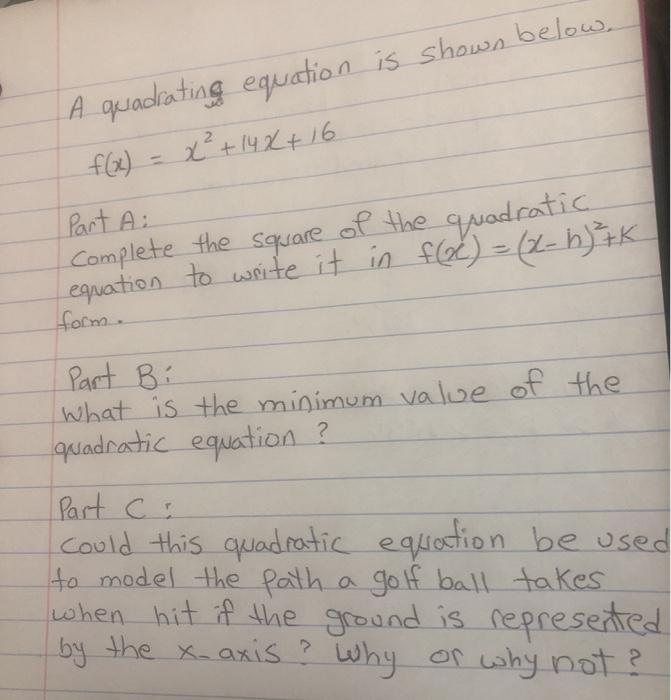 A quadrating equation is shown below.
f(x) = x² + 14x + 16
Part A:
Complete the square of the quadratic
equation to write it in f(x) = (x-h)²+K
form.
Part B:
What is the minimum value of the
quadratic equation ?
Part C :
Could this quadratic equation be used
to model the path a golf ball takes
when hit if the ground is represented
by the x-axis ? Why or why not ?